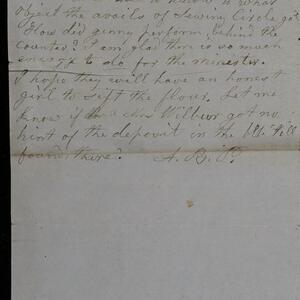 object the avails of Sewing Circle go?
How did ginny perform behind the
Counter? I am glad there is so much
energy to do for the minister.
I hope they will have an honest
girl to sift the flour. Let me
know if Wilbur got no
hint of the deposit in the
found there? A. B. P.